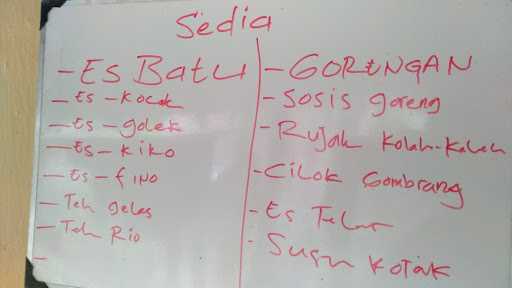 Sedia
- Es Batu
- Es - Kocok
- Es - golek
- Es - Kiko
- Es - fino
- Teh gelas
- Teh Rio
-
- GORENGAN
- Sosis goreng
- Rujak Kolah-Kaleh
- Cilok Gombrang
- Es Telur
- Susu Kotak